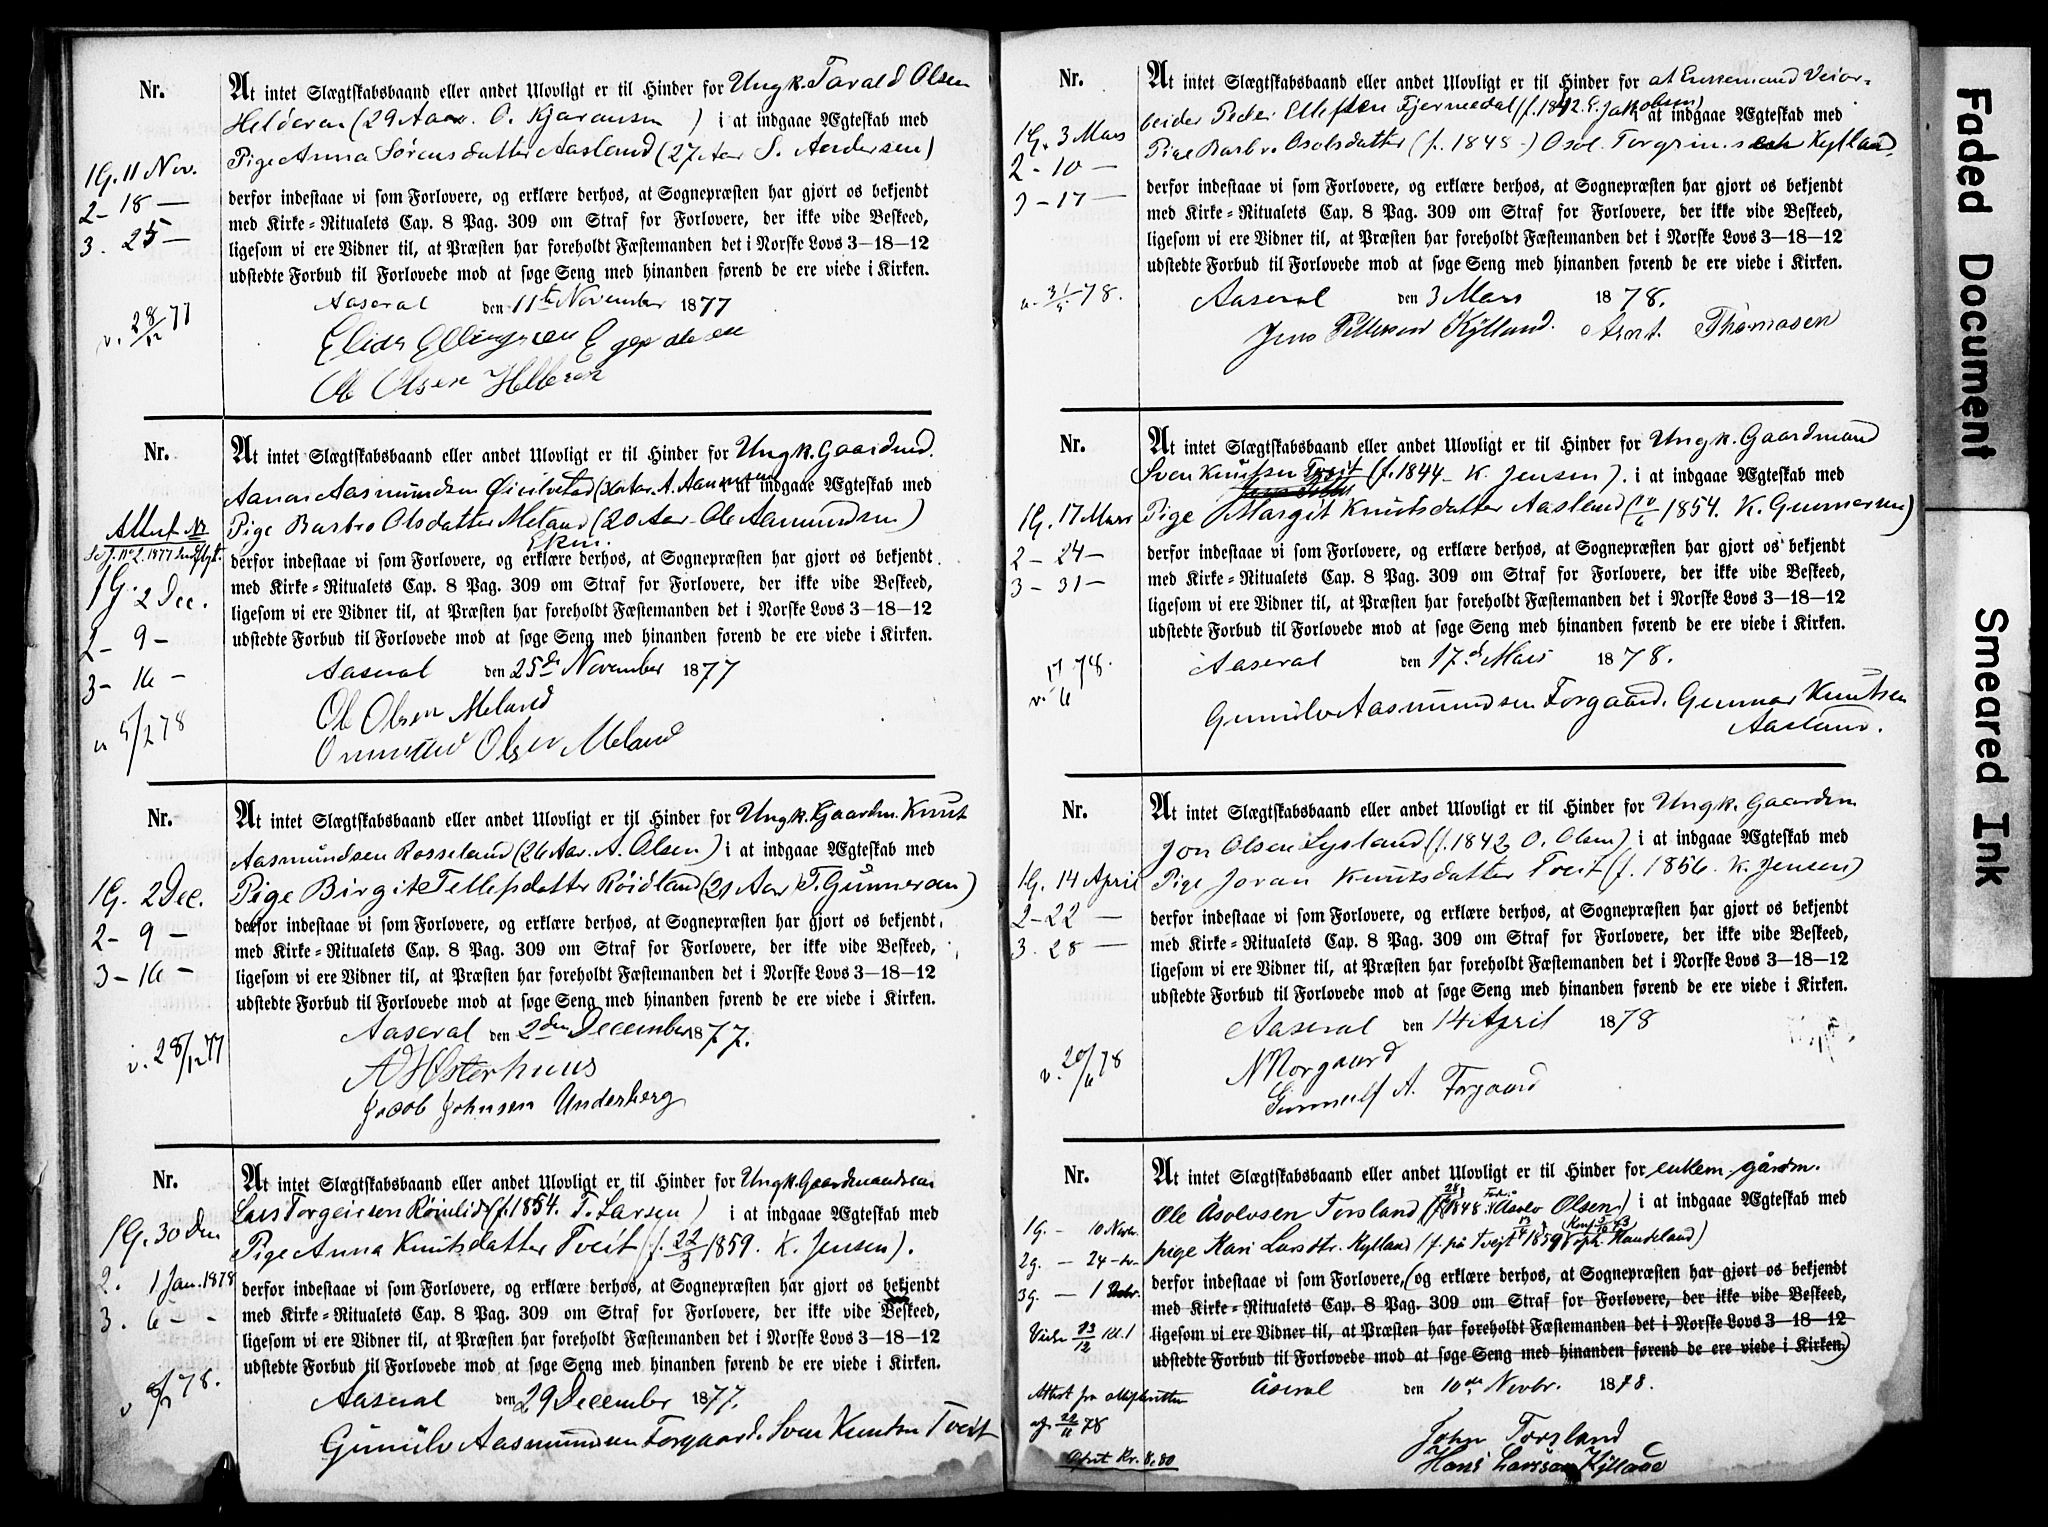 Nr.
At intet Slægtskabsbaand eller andet Ulovligt er til Hinder for Ungk. Tarald Olsen
Helderen (29 Aar. O. Kjøransen) i at indgaae Ægteskab med
Pige Anna Sørensdatter Aasland (27 Aar S. Andersen)
derfor indestaae vi som Forlovere, og erklære derhos, at Sognepræsten har gjort os bekjendt
med Kirke=Ritualets Cap. 8 Pag. 309 om Straf for Forlovere, der ikke vide Beskeed,
ligesom vi ere Vidner til, at Præsten har foreholdt Fæstemanden det i Norske Lovs 3—18—12
udstedte Forbud til Forlovede mod at søge Seng med hinanden førend de ere viede i Kirken.
1G. 11 Nov.
2- 18 —
3. 25 —
v. 28/12 77
Aaseral den 11te November 1877
Ole Olsen Helleren
Nr.
At intet Slægtskabsbaand eller andet Ulovligt er til Hinder for Ungk. Gaardmd.
Aanar Aasmundsen i at indgaae Ægteskab med
Pige Barbro Olsdatter Meland (20 Aar Ole Aamundsen)
derfor indestaae vi som Forlovere, og erklære derhos, at Sognepræsten har gjort os bekjendt
med Kirke=Ritualets Cap. 8 Pag. 309 om Straf for Forlovere, der ikke vide Beskeed,
ligesom vi ere Vidner til, at Præsten har foreholdt Fæstemanden det i Norske Lovs 3—18—12
udstedte Forbud til Forlovede mod at søge Seng med hinanden førend de ere viede i Kirken.
Attest
1G. 2 Dec.
2- 9 —
3- 16 —
v 5/2 78
Aaseral den 25de November 1877
Ole Olsen Meland
Ommund Olsen Meland
Nr.
At intet Slægtskabsbaand eller andet Ulovligt er til Hinder for Ungk. Gaardm. Knut
Aasmundsen Rosseland (26 Aar. A. Olsen) i at indgaae Ægteskab med
Pige Birgit Tellefsdatter Røidland (21 Aar T. Gunnersen)
derfor indestaae vi som Forlovere, og erklære derhos, at Sognepræsten har gjort os bekjendt
med Kirke=Ritualets Cap. 8 Pag. 309 om Straf for Forlovere, der ikke vide Beskeed,
ligesom vi ere Vidner til, at Præsten har foreholdt Fæstemanden det i Norske Lovs 3—18—12
udstedte Forbud til Forlovede mod at søge Seng med hinanden førend de ere viede i Kirken.
1G. 2 Dec.
2- 9 —
3- 16 —
v. 28/12 77
Aaseral den 2den December 1877.
A Østerhuus
Jacob Johnsen Underberg
Nr.
At intet Slægtskabsbaand eller andet Ulovligt er til Hinder for Ungk. Gaardmandssøn
Lars Torgeirsen Røinlid (f. 1854. T. Larsen) i at indgaae Ægteskab med
Pige Anna Knutsdatter Tveit (f. 22/3 1859. K. Jensen).
derfor indestaae vi som Forlovere, og erklære derhos, at Sognepræsten har gjort os bekjendt
med Kirke=Ritualets Cap. 8 Pag. 309 om Straf for Forlovere, der ikke vide Beskeed,
ligesom vi ere Vidner til, at Præsten har foreholdt Fæstemanden det i Norske Lovs 3—18—12
udstedte Forbud til Forlovede mod at søge Seng med hinanden førend de ere viede i Kirken.
1G. 30 Dec
2. 1 Jan. 1878
3. 6 — —
Aaseral den 29 December 1877.
Gunulv Aasmundsen Forgaard. Sven Knutsen Tveit
Nr.
At intet Slægtskabsbaand eller andet Ulovligt er til Hinder for at Enkemand Veiar-
beider Peder Ellefsen Fjermedal (f. 1842. E. Jakobsen) i at indgaae Ægteskab med
Pige Barbro Osolsdatter (f. 1848) Osol. Torgrimsen Kylland.
derfor indestaae vi som Forlovere, og erklære derhos, at Sognepræsten har gjort os bekjendt
med Kirke=Ritualets Cap. 8 Pag. 309 om Straf for Forlovere, der ikke vide Beskeed,
ligesom vi ere Vidner til, at Præsten har foreholdt Fæstemanden det i Norske Lovs 3—18—12
udstedte Forbud til Forlovede mod at søge Seng med hinanden førend de ere viede i Kirken.
1G. 3 Mars
2 - 10 —
3 - 17 —
Aaseral den 3 Mars 1878.
Jens Tellefsen Kylland. Arnt. Thomasen
Nr.
At intet Slægtskabsbaand eller andet Ulovligt er til Hinder for Ungk. Gaardmand
Sven Knutsen Tveit (f. 1844 - K. Jensen). i at indgaae Ægteskab med
Pige Margit Knutsdatter Aasland (10/6 1854. K. Gunnersen)
derfor indestaae vi som Forlovere, og erklære derhos, at Sognepræsten har gjort os bekjendt
med Kirke=Ritualets Cap. 8 Pag. 309 om Straf for Forlovere, der ikke vide Beskeed,
ligesom vi ere Vidner til, at Præsten har foreholdt Fæstemanden det i Norske Lovs 3—18—12
udstedte Forbud til Forlovede mod at søge Seng med hinanden førend de ere viede i Kirken.
1G. 17 Mars
2 - 24 —
3 - 31 —
Aaseral den 17de Mars 1878.
Gunulv Aasmundsen Forgaard. Gunnar Knutsen
Aasland.
Nr.
At intet Slægtskabsbaand eller andet Ulovligt er til Hinder for Ungk. Gaardm
Jon Olsen Lysland (f. 1842, O. Olsen) i at indgaae Ægteskab med
Pige Joran Knutsdatter Tveit (f. 1856. K. Jensen)
derfor indestaae vi som Forlovere, og erklære derhos, at Sognepræsten har gjort os bekjendt
med Kirke=Ritualets Cap. 8 Pag. 309 om Straf for Forlovere, der ikke vide Beskeed,
ligesom vi ere Vidner til, at Præsten har foreholdt Fæstemanden det i Norske Lovs 3—18—12
udstedte Forbud til Forlovede mod at søge Seng med hinanden førend de ere viede i Kirken.
1G. 14 April
2-22 —
3. 28 —
v. 20/6 78
Aaseral den 14 April 1878
N Norgaard
Gunnulf A. Forgaard
Nr.
At intet Slægtskabsbaand eller andet Ulovligt er til Hinder for enkem. gårdm.
Ole Åsolvsen Torsland (f. 1848. Åsolv Olsen) i at indgaae Ægteskab med
pige Kari Larsdtr. Kylland (f. på Tvejt 1859
derfor indestaae vi som Forlovere, (og erklære derhos, at Sognepræsten har gjort os bekjendt
med Kirke=Ritualets Cap. 8 Pag. 309 om Straf for Forlovere, der ikke vide Beskeed,
ligesom vi ere Vidner til, at Præsten har foreholdt Fæstemanden det i Norske Lovs 3—18—12
udstedte Forbud til Forlovede mod at søge Seng med hinanden førend de ere viede i Kirken.)
1g. — 10 Novbr.
2g. — 24 —
3g. — 1 Decbr.
Viede 13/12 kl. 1
Attest fra
af 22/11 78
Åseral den 10de Novbr. 1878.
John Torsland
Hans Larssen Kylland
Faded Document
Smeared Ink